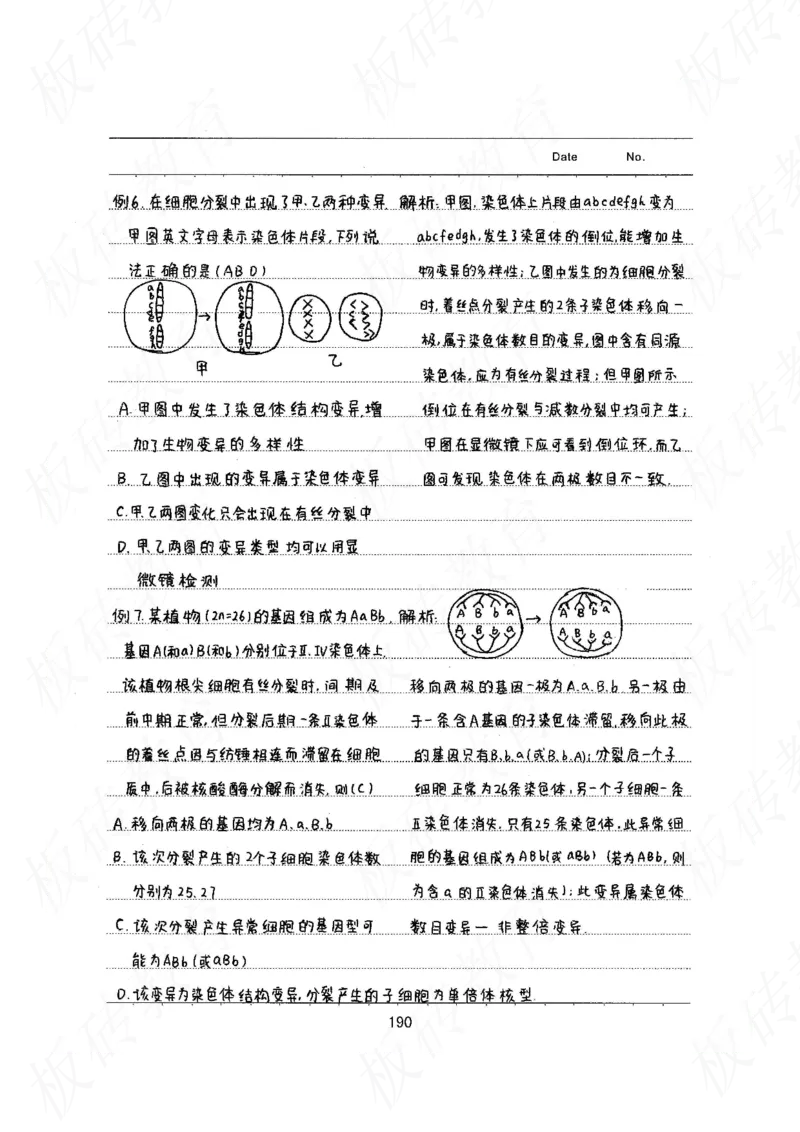 Date No.
例6、在细胞分裂中出现了甲、乙两种变异
甲图英文字母表示染色体片段,下列说
法正确的是(ABD)
甲
乙
A.甲图中发生了染色体结构变异,增
加了生物变异的多样性
B.乙图中出现的变异属于染色体变异
C.甲、乙两图变化只会出现在有丝分裂中
D.甲、乙两图的变异类型均可以用显
微镜检测
解析:甲图,染色体上片段由abcdefgh变为
abcfedgh,发生了染色体的倒位,能增加生
物变异的多样性;乙图中发生的为细胞分裂
时,着丝点分裂产生的2条子染色体移向一
极,属于染色体数目的变异,图中含有同源
染色体,应为有丝分裂过程;但甲图所示
倒位在有丝分裂与减数分裂中均可产生;
甲图在显微镜下应可看到倒位环,而乙
图可发现染色体在两极数目不一致.
例7.某植物(2n=26)的基因组成为AaBb,
基因A(和a)B(和b)分别位于Ⅱ、Ⅳ染色体上,
该植物根尖细胞有丝分裂时,间期及
前中期正常,但分裂后期一条Ⅱ染色体
的着丝点因与纺锤相连而滞留在细胞
质中,后被核酸酶分解而消失,则(C)
A.移向两极的基因均为A、a、B、b
B.该次分裂产生的2个子细胞染色体数
分别为25、27
C.该次分裂产生异常细胞的基因型可
能为ABb(或aBb)
D.该变异为染色体结构变异,分裂产生的子细胞为单倍体核型.
解析:
A B b a
A B b a
A B b a
A B b a
移向两极的基因一极为A、a、B、b 另一极由
于一条含A基因的子染色体滞留,移向此极
的基因只有B、b、a(或B、b、A);分裂后一个子
细胞正常为26条染色体,另一个子细胞一条
Ⅱ染色体消失,只有25条染色体,此异常细
胞的基因组成为ABb(或aBb)(若为ABb,则
为含a的Ⅱ染色体消失);此变异属染色体
数目变异一 非整倍变异.
190
板砖教育